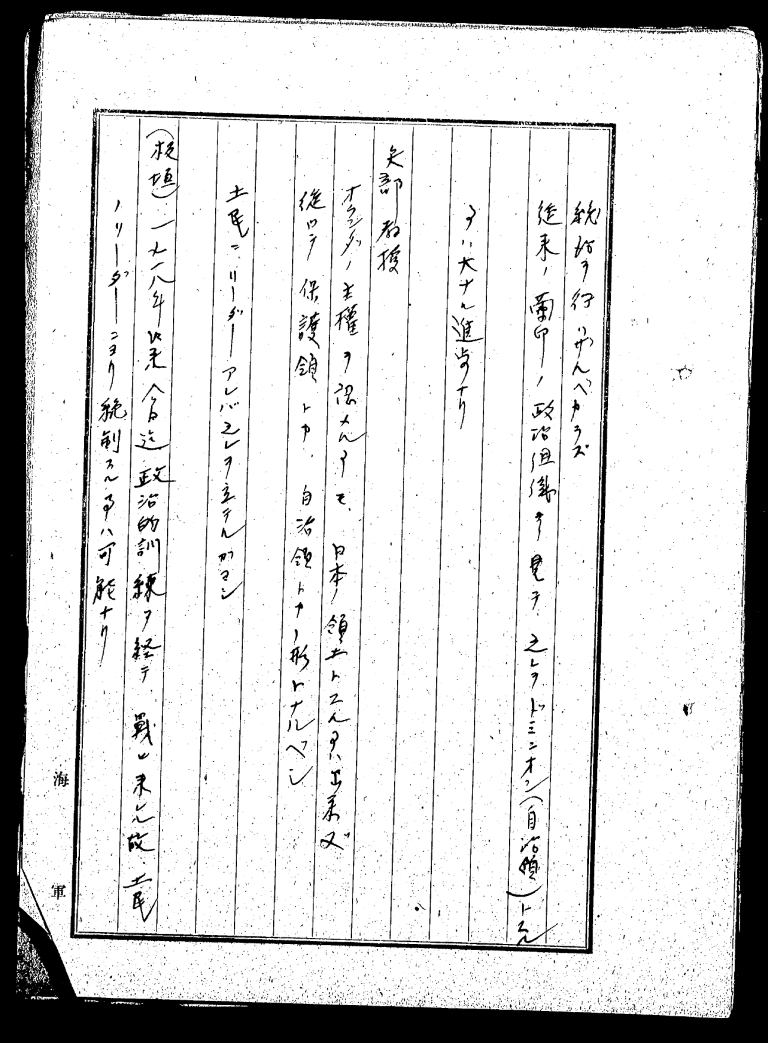 統治ヲ行ハザルベカラズ
従来ノ蘭印ノ政治組織ヲ見テ、之レヲドミニオン(自治領)トスル
事ハ大ナル進歩ナリ
矢部教授
オランダノ主権ヲ認メル事モ、日本ノ領土トスル事ハ出来ヌ
従ツテ保護領トカ、自治領トカノ形トナルベシ
土民ニリーダーアレバ之レヲ立テルガヨシ
(板垣)一九一八年以来今日迄政治的訓練ヲ経テ、戦ヒ来レル故、土民
ノリーダーニヨリ統制スル事ハ可能ナリ
海軍